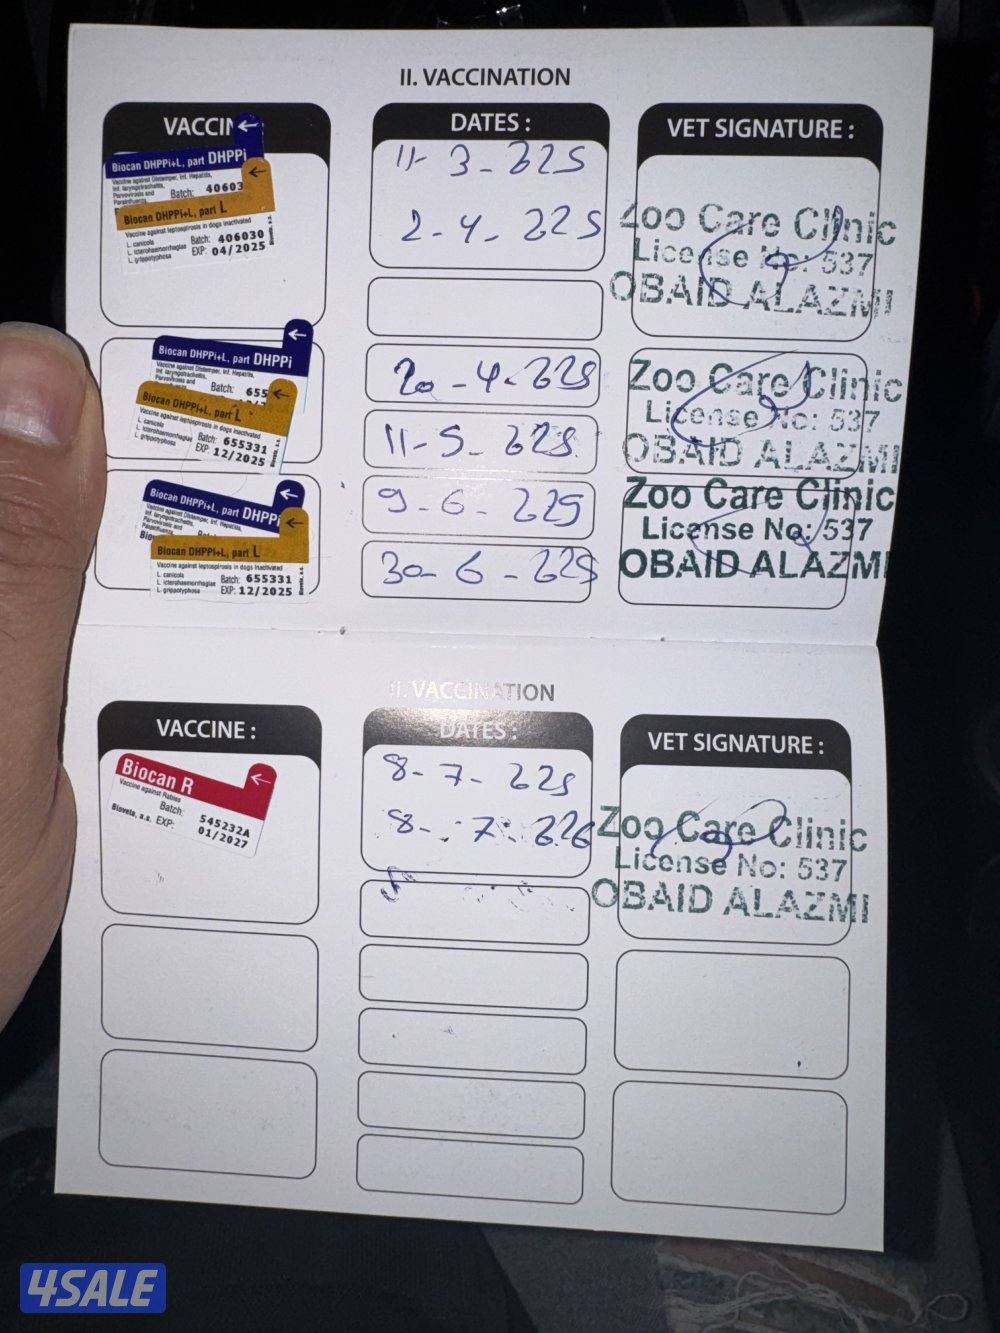 II. VACCINATION
VACCIN
DATES :
VET SIGNATURE :
Biocan DHPPi+L, part DHPPi
Vaccine against Distemper, Inf. Hepatitis,
Inf. laryngotracheitis,
Parvovirosis and
Parainfluenza
Batch: 40603
Biocan DHPPi+L, part L
Vaccine against leptospirosis in dogs inactivated
L. canicola
L. icterohaemorrhagiae
L. grippotyphosa
Batch: 406030
EXP: 04/2025
Bioveta, a.s.
11-3-225
2-4-225
Zoo Care Clinic
License No: 537
OBAID ALAZMI
Biocan DHPPi+L, part DHPPi
Vaccine against Distemper, Inf. Hepatitis,
Inf. laryngotracheitis,
Parvovirosis and
Batch: 655
Biocan DHPPi+L, part L
Vaccine against leptospirosis in dogs inactivated
L. canicola
L. icterohaemorrhagiae
L. grippotyphosa
Batch: 655331
EXP: 12/2025
Bioveta, a.s.
20-4-225
11-5-225
Zoo Care Clinic
License No: 537
OBAID ALAZMI
Biocan DHPPi+L, part DHPPi
Vaccine against Distemper, Inf. Hepatitis,
Inf. laryngotracheitis,
Parvovirosis and
Parainfluenza
Biocan DHPPi+L, part L
Vaccine against leptospirosis in dogs inactivated
L. canicola
L. icterohaemorrhagiae
L. grippotyphosa
Batch: 655331
EXP: 12/2025
Bioveta, a.s.
9-6-225
30-6-225
Zoo Care Clinic
License No: 537
OBAID ALAZMI
II. VACCINATION
VACCINE :
DATES :
VET SIGNATURE :
Biocan R
Vaccine against Rabies
Batch: 545232A
Bioveta, a.s. EXP: 01/2027
8-7-225
8-7-226
Zoo Care Clinic
License No: 537
OBAID ALAZMI
4SALE